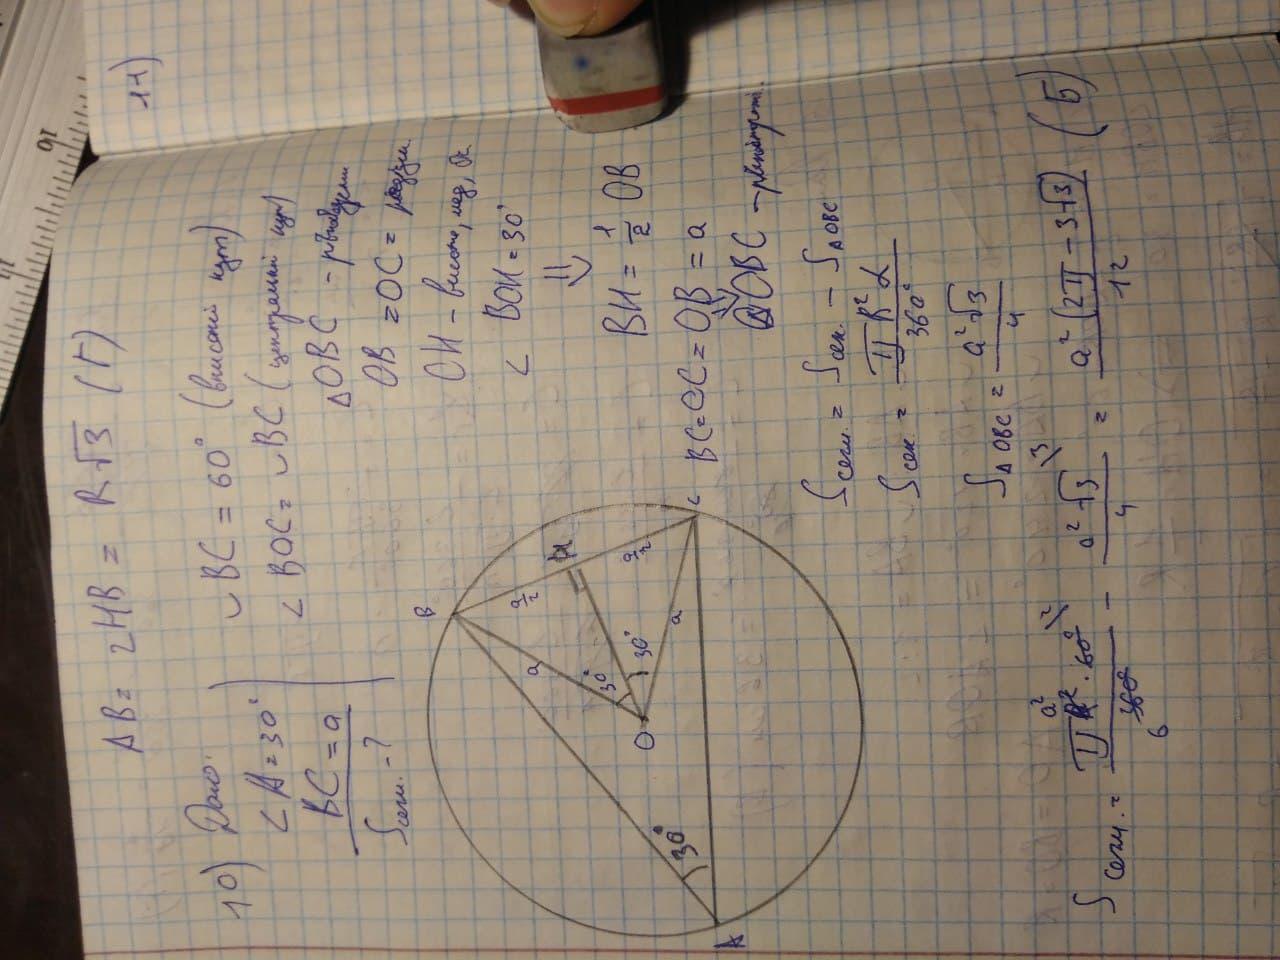 AB = 2HB = R√3 (Г)
10) Дано:
∠A = 30°
BC = a
Sсегм. - ?
◡BC = 60° (вписаний кут)
∠BOC = ◡BC (центральний кут)
△OBC - рівнобедрен
OB = OC = радіуси
OH - висота, мед, бі.
∠BOH = 30°
⇓
BH = 1/2 OB
BC = OC = OB = a
⇓
△OBC - рівносторон.
B
a/2
H
a/2
C
a
30°
30°
a
O
30°
A
Sсегм. = Sсек. - S△OBC
Sсек. = ПR²α/360°
S△OBC = a²√3/4
Sсегм. = Пa²·60°/360° - a²√3/4 = a²(2П - 3√3)/12 (Б)
11)
10
11